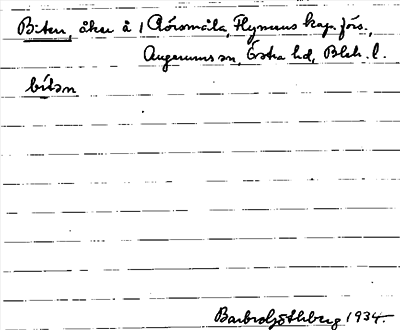 Biten, åker å 1 Rörsmåla, Flymens kap. förs.,
Augerums sn, Östra hd, Blek. l.
bitən
Barbro Göthberg 1934.